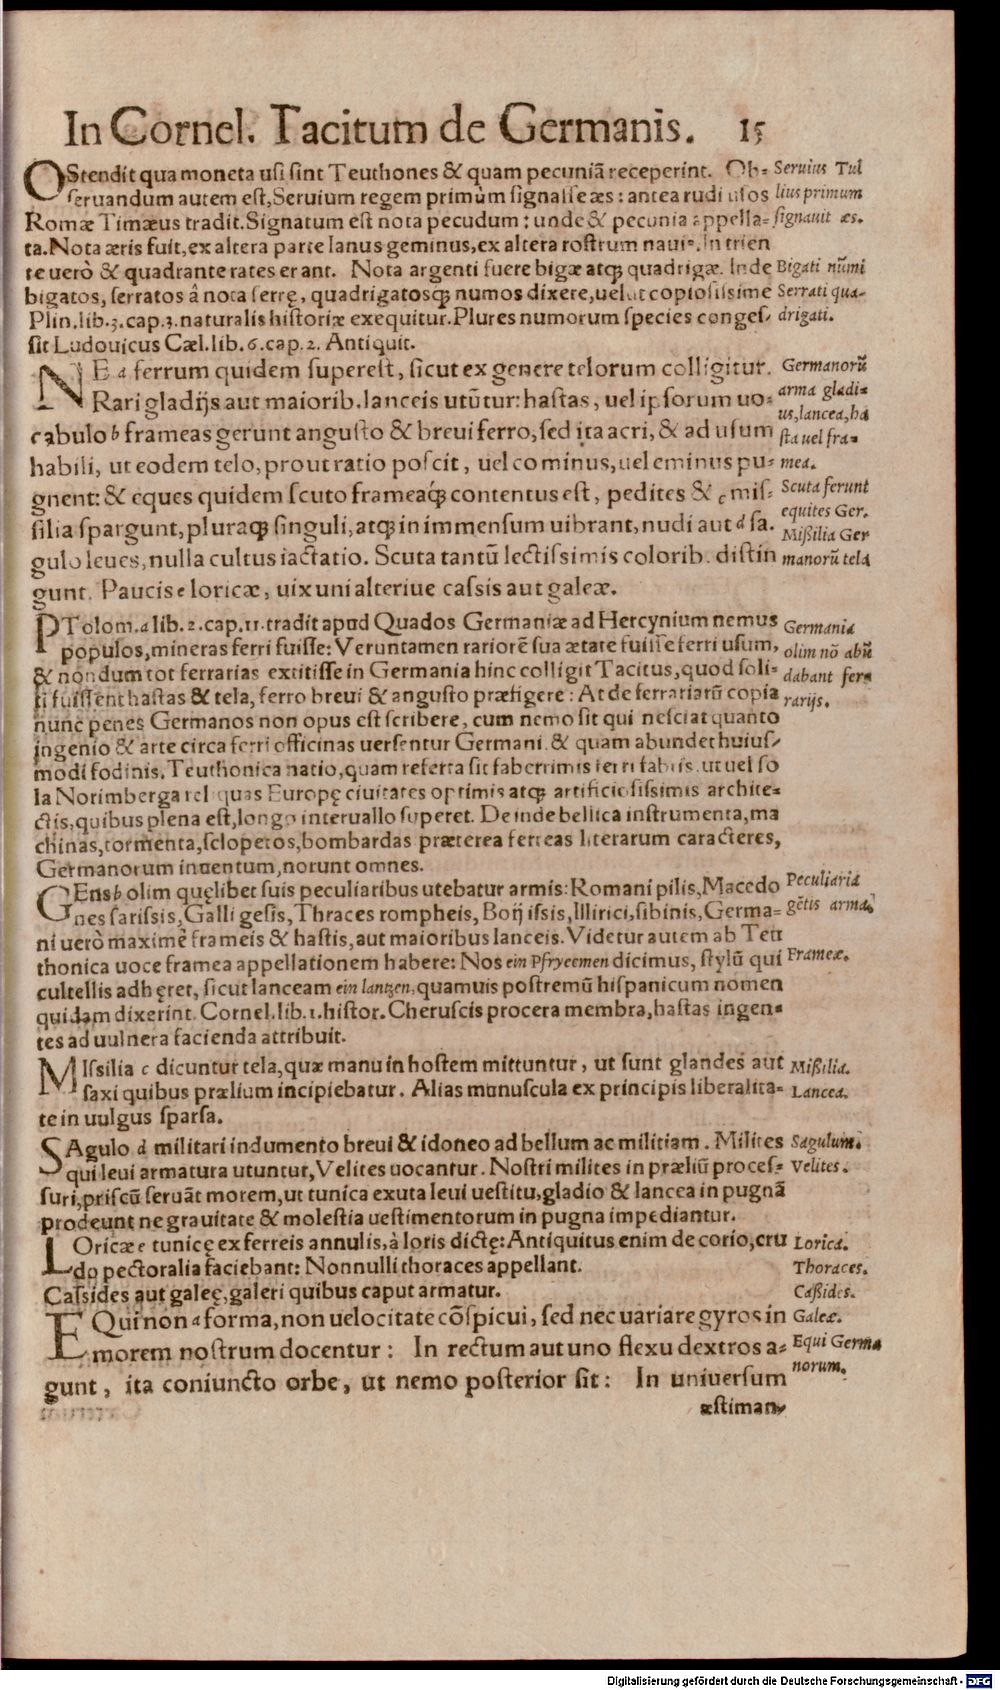 In Cornel. Tacitum de Germanis. 15
OStendit qua moneta usi sint Teuthones & quam pecuniã receperint. Ob-
seruandum autem est, Seruium regem primùm signasse æs: antea rudi usos
Romæ Timæus tradit. Signatum est nota pecudum: unde & pecunia appella-
ta. Nota æris fuit, ex altera parte Ianus geminus, ex altera rostrum naui-. In trien
te uerò & quadrante rates erant. Nota argenti fuere bigæ atq; quadrigæ. Inde
bigatos, serratos â nota serrę, quadrigatosq; numos dixere, uelut copiosissime
Plin. lib. 3. cap. 3. naturalis historiæ exequitur. Plures numorum species conges-
sit Ludouicus Cæl. lib. 6. cap. 2. Antiquit.
Seruius Tul
lius primum
signauit æs.
Bigati nũmi
Serrati qua-
drigati.
NE a ferrum quidem superest, sicut ex genere telorum colligitur.
Rari gladijs aut maiorib. lanceis utũtur: hastas, uel ipsorum uo-
cabulo b frameas gerunt angusto & breui ferro, sed ita acri, & ad usum
habili, ut eodem telo, prout ratio poscit, uel cominus, uel eminus pu-
gnent: & eques quidem scuto frameaq́; contentus est, pedites & c mis-
silia spargunt, pluraq; singuli, atq; in immensum uibrant, nudi aut d sa-
gulo leues, nulla cultus iactatio. Scuta tantũ lectissimis colorib. distin
gunt. Paucis e loricæ, uix uni alteriue cassis aut galeæ.
Germanorũ
arma gladi-
us, lancea, ha
sta uel fra-
mea.
Scuta ferunt
equites Ger.
Mißilia Ger
manorũ tela
PTolom. a lib. 2. cap. 11. tradit apud Quados Germaniæ ad Hercynium nemus
populos, mineras ferri fuisse: Veruntamen rariorẽ sua ætate fuisse ferri usum,
& nondum tot ferrarias extitisse in Germania hinc colligit Tacitus, quod soli-
ti fuissent hastas & tela, ferro breui & angusto præfigere: At de ferrariarũ copia
nunc penes Germanos non opus est scribere, cum nemo sit qui nesciat quanto
ingenio & arte circa ferri officinas uersentur Germani. & quam abundet huius-
modi fodinis. Teuthonica natio, quam referta sit faberrimis ferri fabris. ut uel so
la Norimberga reliquas Europę ciuitates optimis atq; artificiosissimis archite-
ctis, quibus plena est, longo interuallo superet. Deinde bellica instrumenta, ma
chinas, tormenta, sclopetos, bombardas præterea ferreas literarum caracteres,
Germanorum inuentum, norunt omnes.
Germania
olim nõ abũ
dabant fer-
rarijs.
GEns b olim quęlibet suis peculiaribus utebatur armis: Romani pilis, Macedo
nes sarissis, Galli gesis, Thraces rompheis, Boij issis, Illirici, sibinis, Germa-
ni uerò maximè frameis & hastis, aut maioribus lanceis. Videtur autem ab Teu
thonica uoce framea appellationem habere: Nos ein Pfryemen dicimus, stylũ qui
cultellis adhęret, sicut lanceam ein lantzen, quamuis postremũ hispanicum nomen
quidam dixerint. Cornel. lib. 1. histor. Cheruscis procera membra, hastas ingen-
tes ad uulnera facienda attribuit.
Peculiaria
gẽtis arma.
Frameæ.
MIssilia c dicuntur tela, quæ manu in hostem mittuntur, ut sunt glandes aut
saxi quibus prælium incipiebatur. Alias munuscula ex principis liberalita-
te in uulgus sparsa.
Mißilia.
Lancea.
SAgulo d militari indumento breui & idoneo ad bellum ac militiam. Milites
qui leui armatura utuntur, Velites uocantur. Nostri milites in præliũ proces-
suri, priscũ seruãt morem, ut tunica exuta leui uestitu, gladio & lancea in pugnã
prodeunt ne grauitate & molestia uestimentorum in pugna impediantur.
Sagulum.
Velites.
LOricæ e tunicę ex ferreis annulis, à loris dictę: Antiquitus enim de corio, cru
do pectoralia faciebant: Nonnulli thoraces appellant.
Cassides aut galeę, galeri quibus caput armatur.
Lorica.
Thoraces.
Caßides.
Galeæ.
EQui non a forma, non uelocitate cõspicui, sed nec uariare gyros in
morem nostrum docentur: In rectum aut uno flexu dextros a-
gunt, ita coniuncto orbe, ut nemo posterior sit: In uniuersum
Equi Germa
norum.
æstiman-
Digitalisierung gefördert durch die Deutsche Forschungsgemeinschaft - DFG